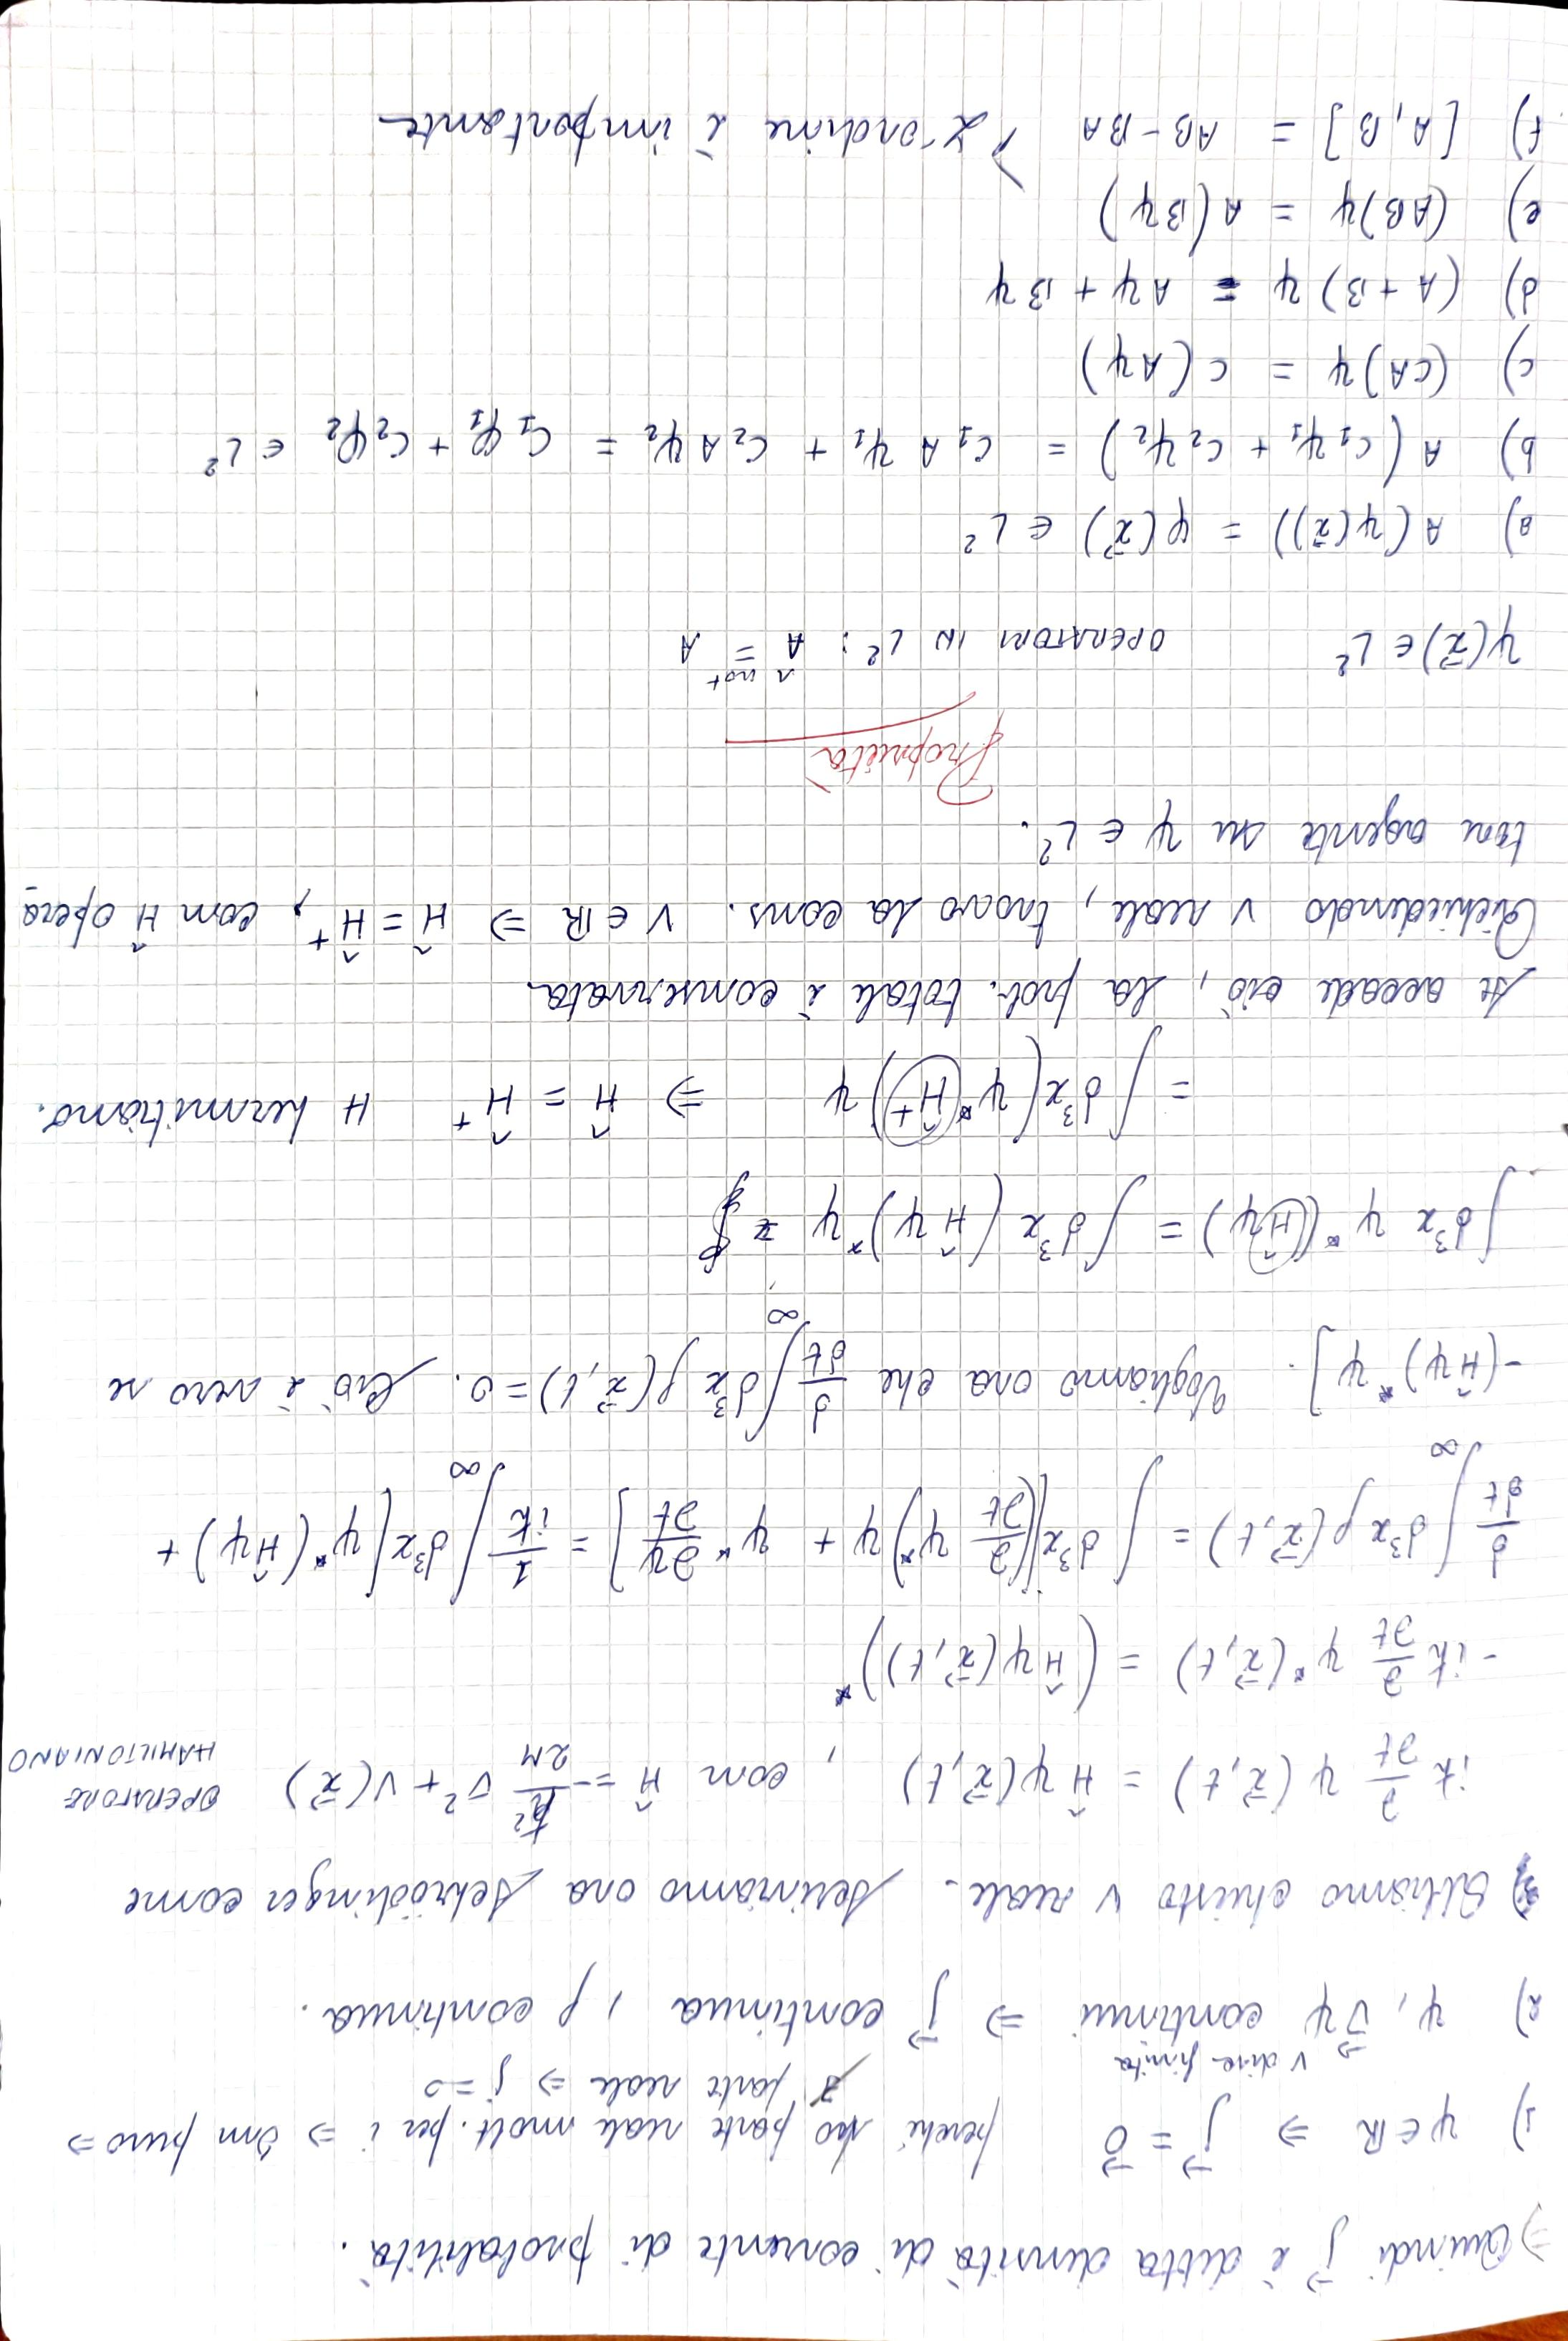 ⇒ Quindi j⃗ è detta densità di corrente di probabilità.
1) ψ ∈ ℝ ⇒ j⃗ = 0⃗ perché ho parte reale molt. per i ⇒ Im puro ⇒
∄ parte reale ⇒ j = 0
V disc finita
2) ψ, ∇⃗ψ continui ⇒ j⃗ continua, ρ continua.
3) Abbiamo chiesto V reale. Scriviamo ora Schrödinger come
iħ ∂/∂t ψ(x⃗,t) = Ĥψ(x⃗,t), con Ĥ = -ħ²/2M ∇² + V(x⃗) OPERATORE HAMILTONIANO
-iħ ∂/∂t ψ*(x⃗,t) = (Ĥψ(x⃗,t))*
d/dt ∫_∞ d³x ρ(x⃗,t) = ∫ d³x [(∂/∂t ψ*)ψ + ψ* ∂ψ/∂t] = 1/iħ ∫_∞ d³x [ψ*(Ĥψ) +
-(Ĥψ)*ψ]. Vogliamo ora che d/dt ∫_∞ d³x ρ(x⃗,t) = 0. Ciò è vero se
∫ d³x ψ*(Ĥψ) = ∫ d³x (Ĥψ)*ψ =
= ∫ d³x (ψ*Ĥ⁺)ψ ⇒ Ĥ = Ĥ⁺ H hermitiano.
Se accade ciò, la prob. totale è conservata.
Richiedendo V reale, trovo la cons. V ∈ ℝ ⇒ Ĥ = Ĥ⁺, con Ĥ opera
tore agente su ψ ∈ L².
Proprietà
ψ(x⃗) ∈ L² OPERATORI IN L²: Â not= A
a) A(ψ(x⃗)) = φ(x⃗) ∈ L²
b) A(c₁ψ₁ + c₂ψ₂) = c₁Aψ₁ + c₂Aψ₂ = c₁φ₁ + c₂φ₂ ∈ L²
c) (cA)ψ = c(Aψ)
d) (A+B)ψ = Aψ + Bψ
e) (AB)ψ = A(Bψ)
f) [A,B] = AB - BA > L'ordine è importante